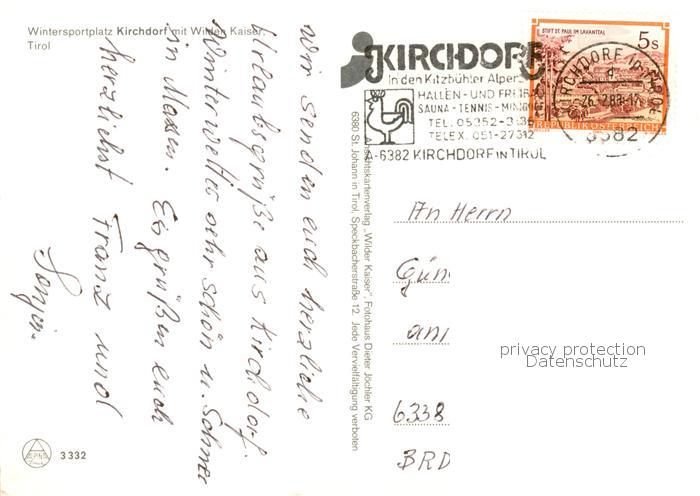 Wintersportplatz Kirchdorf mit Wilden Kaiser,
Tirol
Wir senden euch herzliche
Urlaubsgrüße aus Kirchdorf.
Winterwetter sehr schön u. Schnee
in Massen. Es grüßen euch
herzlichst Franz und
Sonja.
3 332
Ansichtskartenverlag „Wilder Kaiser“, Fotohaus Dieter Jöchler KG
6380 St. Johann in Tirol, Speckbacherstraße 12 Jede Vervielfältigung verboten
KIRCHDORF
in den Kitzbühler Alpen
HALLEN - UND FREIB
SAUNA - TENNIS - MINIGOLF
TEL. 05352-3136
TELEX. 051-27312
A-6382 KIRCHDORF IN TIROL
STIFT ST. PAUL IM LAVANTTAL
5s
REPUBLIK ÖSTERREICH
KIRCHDORF IN TIROL
6382
An Herrn
Gün
am
6338
BRD
privacy protection
Datenschutz